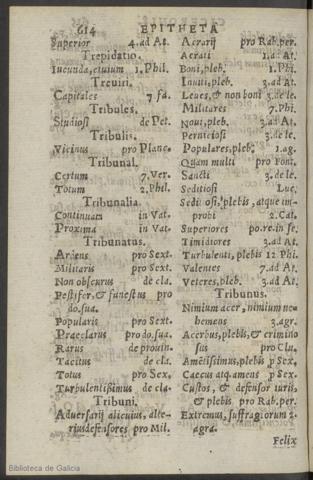 614 EPITHETA
Superior 4. ad At.
Trepidatio.
Iucunda, etuium 1. Phil.
Treuiri.
Capitales 7 fa.
Tribules.
Studiosi de Pet.
Tribulis.
Vicinus pro Planc.
Tribunal.
Certum 7. Ver.
Totum 2. Phil.
Tribunalia.
Continuata in Vat.
Proxima in Vat.
Tribunatus.
Ardens pro Sext.
Militaris pro Sext.
Non obscurus de cla.
Pestifer, & funestus pro
do. sua.
Popularis pro Sext.
Praeclarus pro do. sua.
Rarus de prouin.
Tacitus de cla.
Totus pro Sex.
Turbulentissimus de cla.
Tribuni.
Aduersarij alicuius, alte-
rius defensores pro Mil.
Aerarij pro Rab. per.
Aerati 1. ad At.
Boni, pleb. 1. Phi.
Inuiti, pleb. 3. ad At.
Leues, & non boni 3. de le.
Militares 7. Phi.
Noui, pleb. 3. ad At.
Perniciosi 3. de le.
Populares, pleb. 1. ag.
Quam multi pro Font.
Sancti 3. de le.
Seditiosi Luc.
Seditiosi, plebis, atque im-
probi 2. Cat.
Superiores po. re. in se.
Timidiores 3. ad At.
Turbulenti, plebis 12 Phi.
Valentes 7. ad At.
Veteres, pleb. 3. ad At.
Tribunus.
Nimium acer, nimium ue-
hemens 3. agr.
Acerbus, plebis, & crimino
sus pro Clu.
Amētissimus, plebis p Sex.
Caecus atq. amens p Sex.
Custos, & defensor iuris,
& plebis pro Rab. per.
Extremus, suffragiorum 2.
agra.
Felix
Biblioteca de Galicia